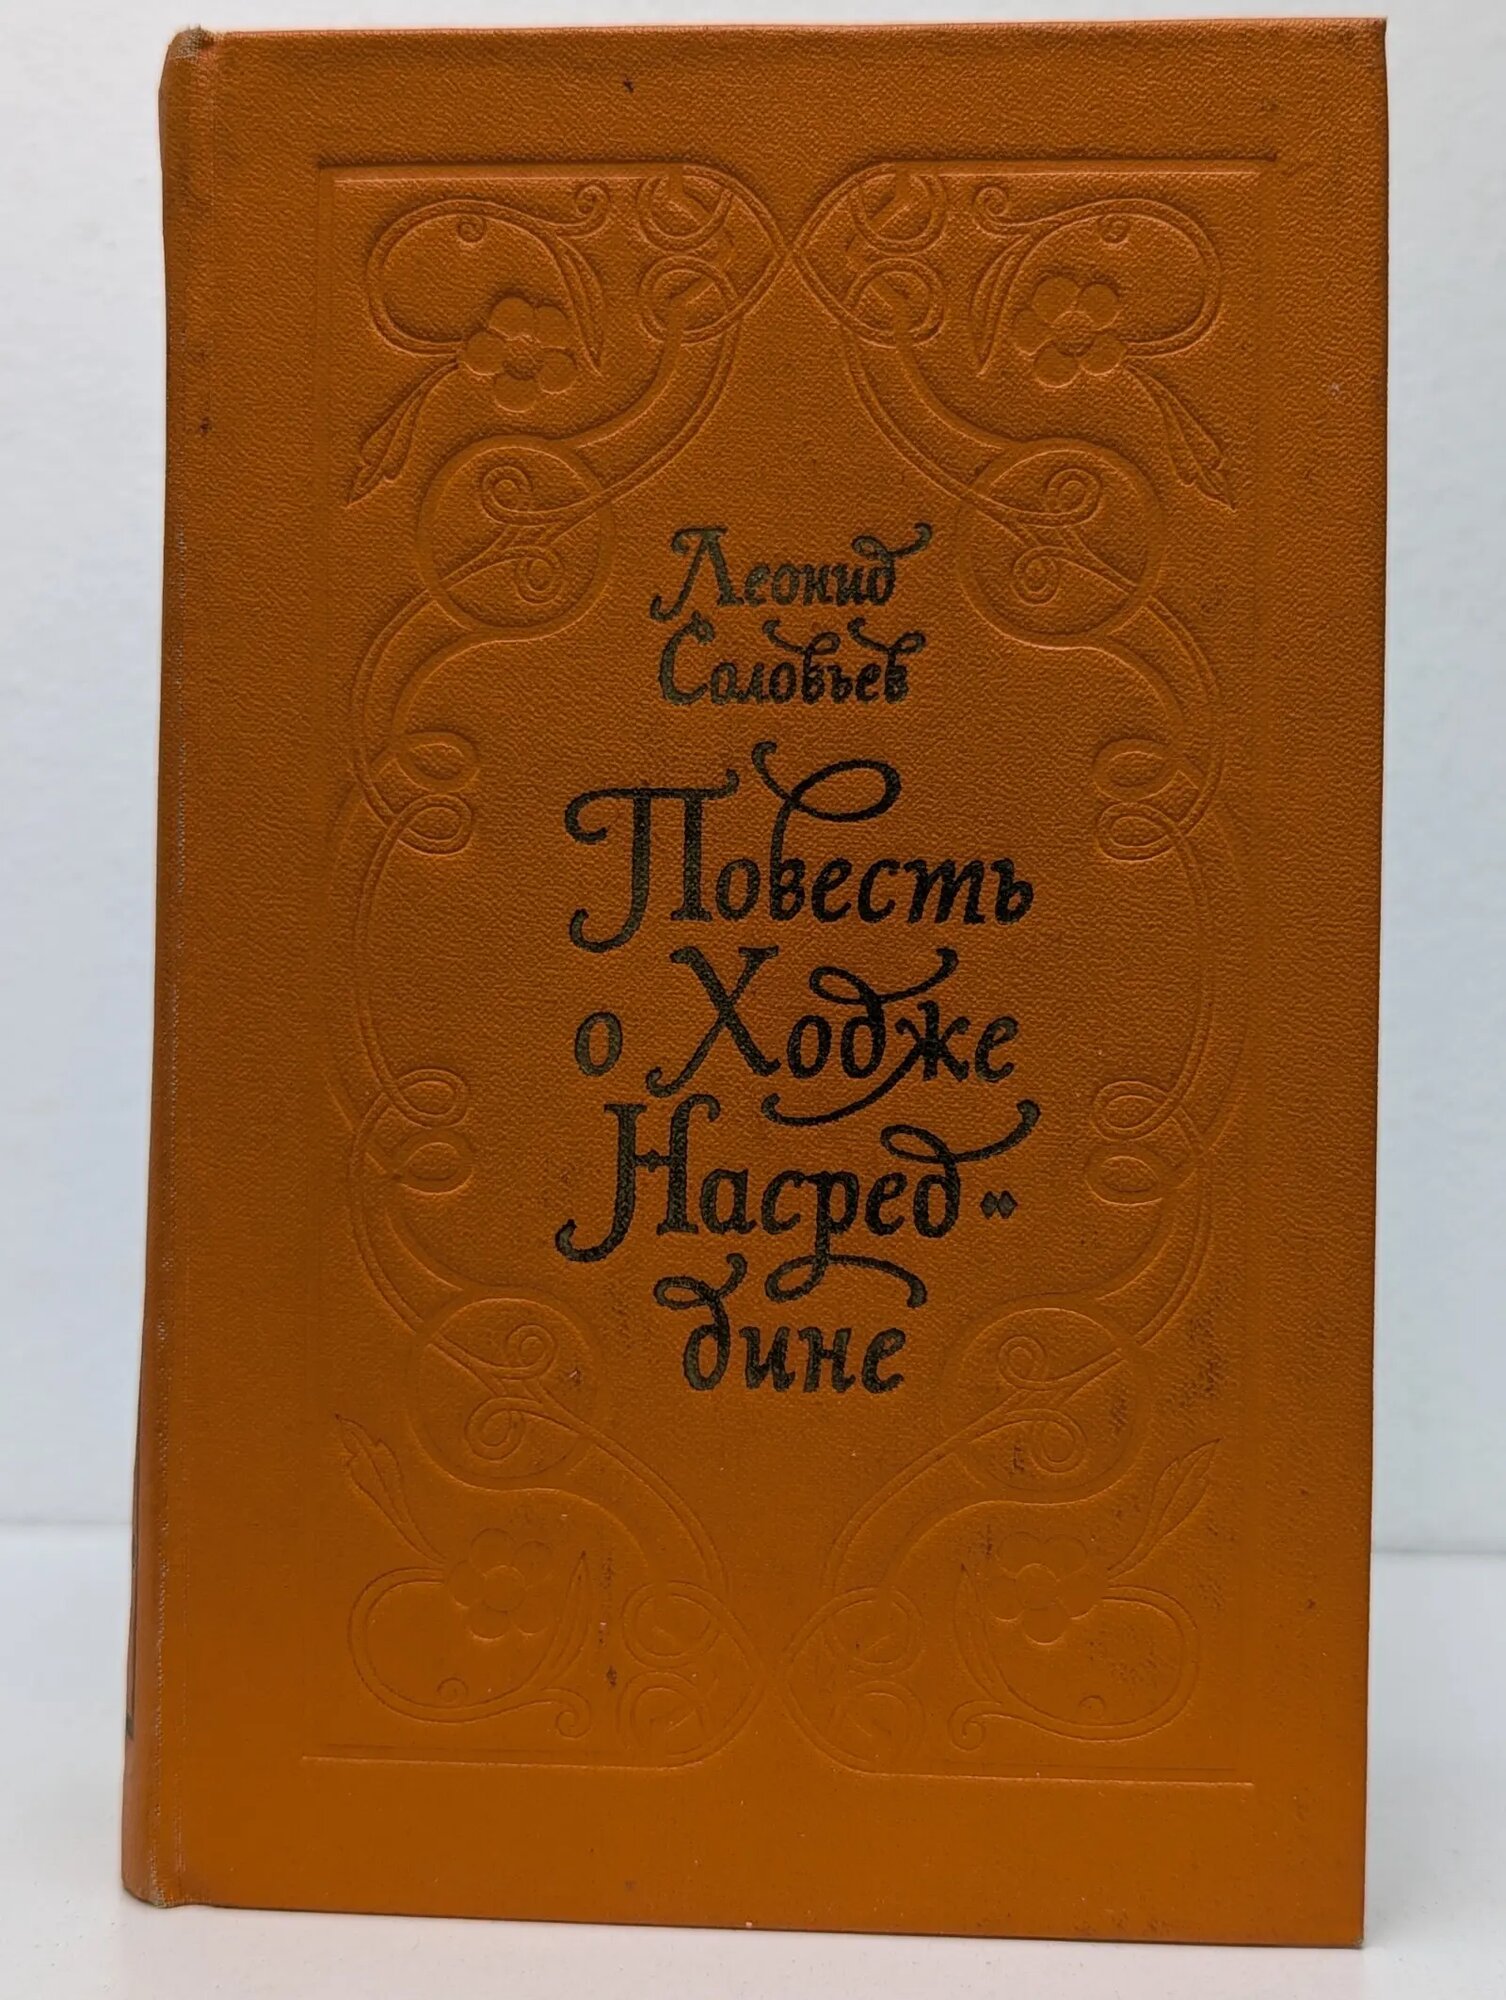 Леонид
Соловьев
Повесть
о Ходже
Насред-
дине